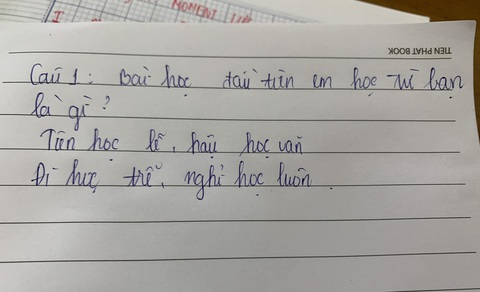 MOMENT
TIEN PHAT BOOK
Câu 1: Bài học đầu tiên em học từ bạn
là gì?
Tiên học lễ, hậu học văn
Đi học trễ, nghỉ học luôn.